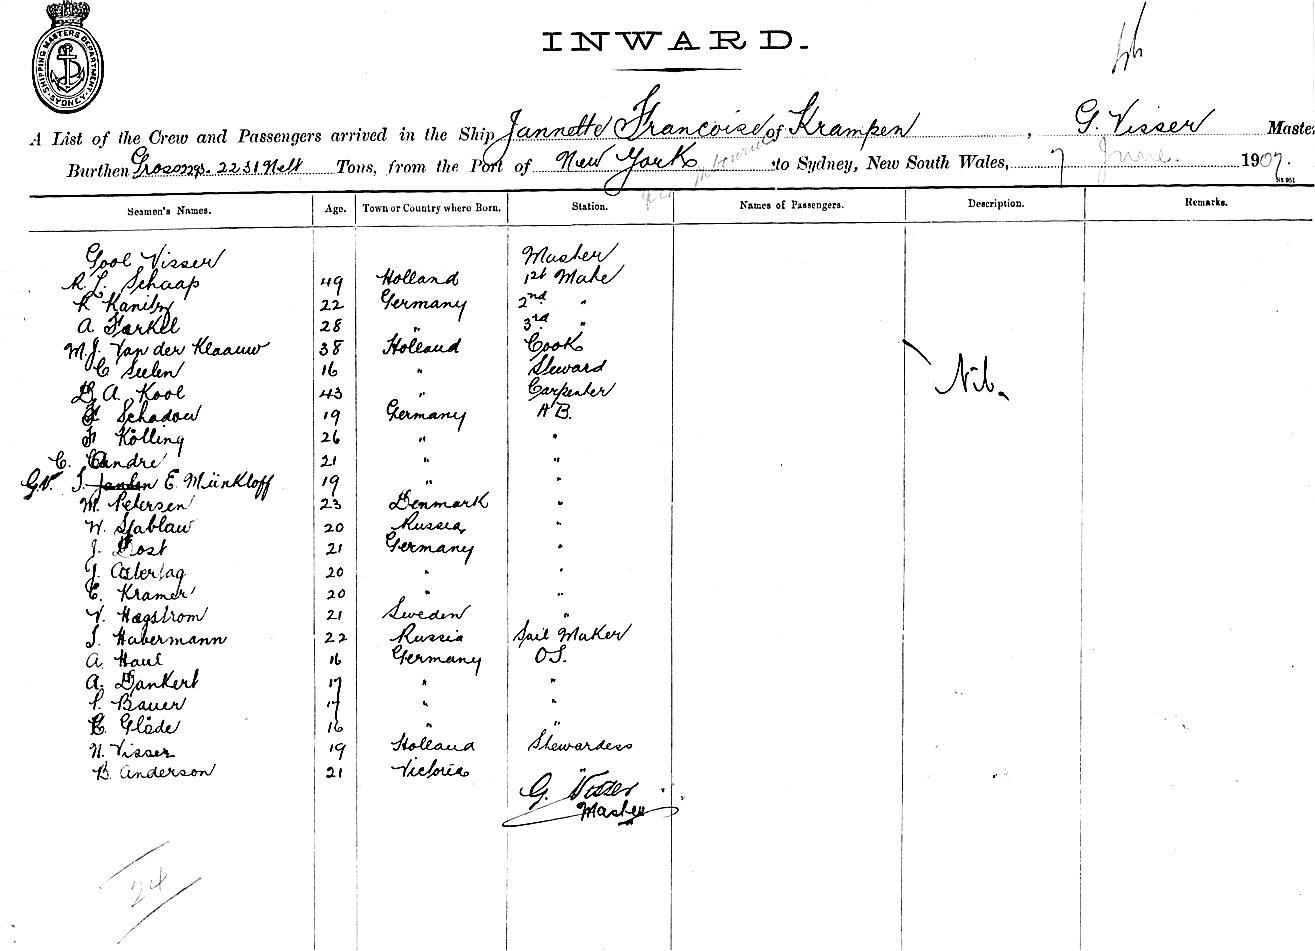 SHIPPING MASTERS DEPARTMENT SYDNEY
INWARD.
A List of the Crew and Passengers arrived in the Ship Jannette Francoise of Krampen, G. Visser Maste
Burthen 2231 Nett Tons, from the Port of New York to Sydney, New South Wales, 7 June. 1907.
Seamen's Names. Age. Town or Country where Born. Station. Names of Passengers. Description. Remarks.
Gool Visser Master
R. L. Schaap 49 Holland 1st Mate
R Kanitz 22 Germany 2nd "
A. Farkel 28 " 3rd "
M.J. Van der Klaauw 38 Holland Cook
C Seelen 16 " Steward
Nil.
A. Kool 43 " Carpenter
Schadow 19 Germany AB.
F Kölling 26 " "
C. Andre 21 " "
G.V. J. Jansen E. Münkloff 19 " "
M. Petersen 23 Denmark "
W. Sjablaw 20 Russia "
J. Dost 21 Germany "
J. Ostertag 20 " "
E. Kramer 20 " "
V. Hagstrom 21 Sweden "
J. Habermann 22 Russia Sail Maker
A. Haul 16 Germany OS.
A. Dankert 17 " "
P. Bauer 17 " "
E. Glöde 16 " "
N. Visser 19 Holland Stewardess
B. Anderson 21 Victoria "
G. Visser
Master
24